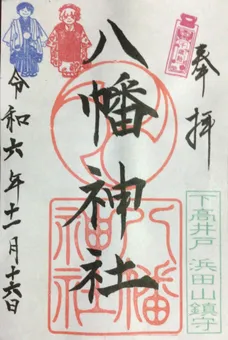 奉拝
八幡神社
八幡神社
下高井戸 浜田山鎮守
令和六年十一月十六日